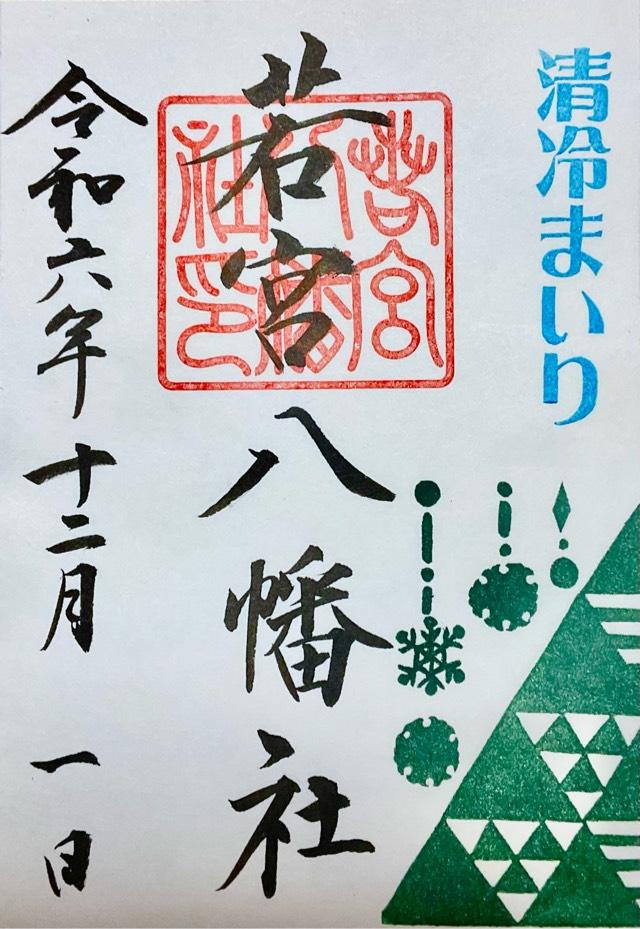 清冷まいり
若宮八幡社
若宮八幡社印
令和六年十二月一日